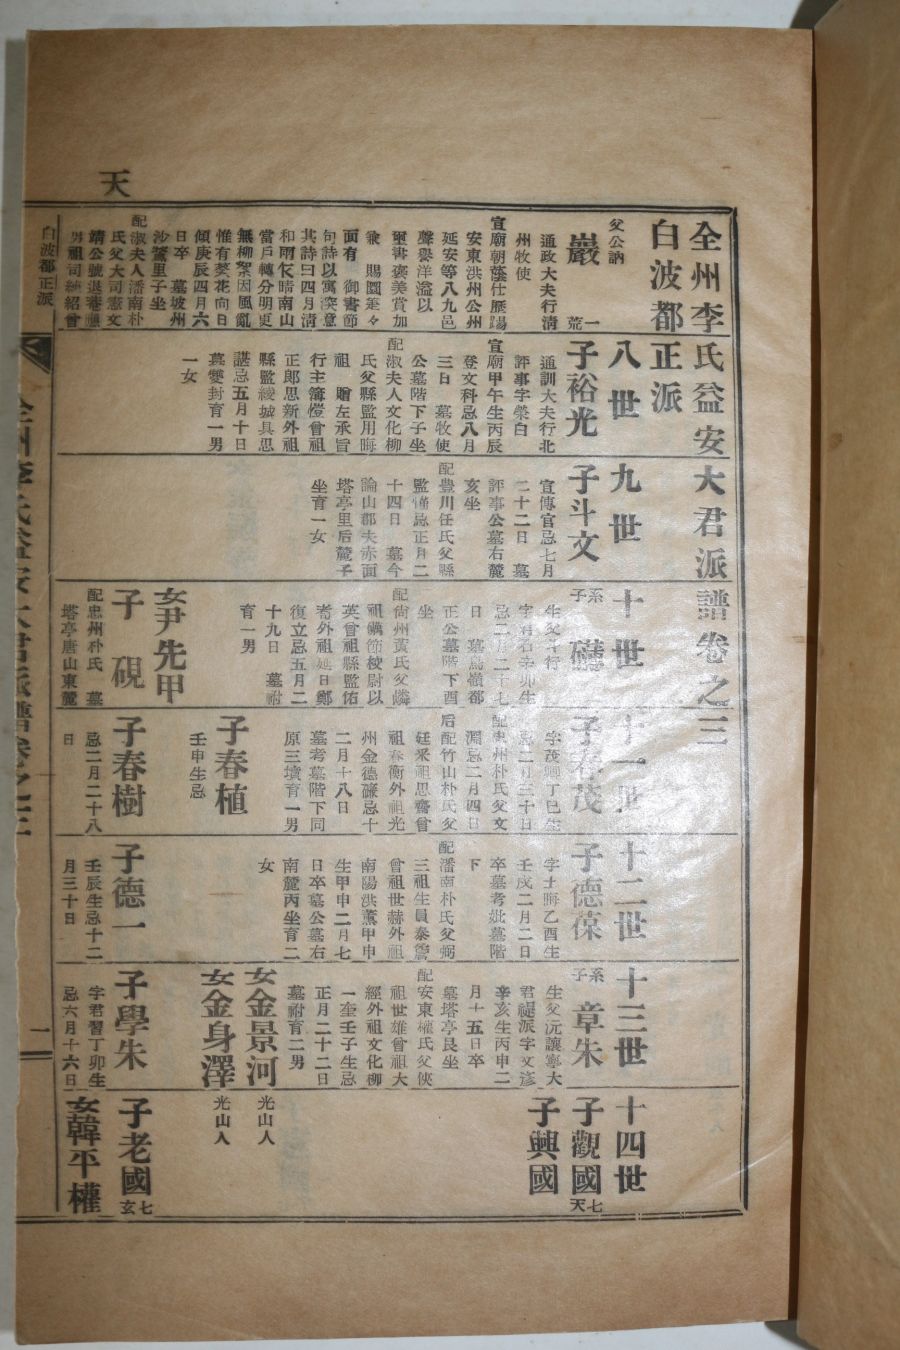 天
全州李氏益安大君派譜卷之三
白波都正派
父公訥
巖
一荒
通政大夫行淸
州牧使
宣廟朝蔭仕歷踢
安東洪州公州
延安等八九邑
聲譽洋溢以
璽書褒美賞加
面有 御書節
句詩以寓深意
其詩曰四月淸
和雨乍晴南山
當戶轉分明更
無柳絮因風亂
惟有葵花向日
傾庚辰四月六
日卒 墓坡州
沙鷲里子坐
配淑夫人潘南朴
氏父大司憲文
八世
子裕光
通訓大夫行北
評事字榮白
宣廟甲午生丙辰
登文科忌八月
三日 墓牧使
公墓階下子坐
配淑夫人文化柳
氏父縣監用晦
祖 贈左承旨
行主簿愷曾祖
正郎思新外祖
縣監綾城具思
諶忌五月十日
墓雙封育一男
一女
九世
子斗文
宣傳官忌七月
二十二日 墓
評事公墓右麓
亥坐
配豊川任氏父縣
監憧忌正月二
十四日 墓今
論山郡夫赤面
塔亭里后麓子
坐育一女
十世
系子
礎
正公墓階下酉
坐
配尙州黃氏父
英曾祖縣監佑
耇外祖延日鄭
復立忌五月二
十九日 墓祔
育一男
女尹先甲
子硯
配忠州朴氏 墓
塔亭唐山東麓
十一世
子春茂
字茂卿丁巳生
忌二月三十日
配忠州朴氏父文
淵忌二月四日
后配竹山朴氏父
廷釆祖思齋曾
祖春衡外祖光
州金德
忌十
二月十八日
墓考墓階下同
原三墳育一男
子春植
壬申生忌
子春樹
忌二月二十八
日
十二世
子德葆
字士晦乙酉生
壬戌二月二日
卒墓考妣墓階
下
配潘南朴氏父弼
三祖生員泰
曾祖世赫外祖
南陽洪薰甲申
生甲申二月七
日卒墓公墓右
南麓丙坐育二
女
子德一
壬辰生忌十二
月三十日
十三世
系子
章朱
生父沅讓寧大
君禔派字文彥
辛亥生丙申二
月十五日卒
墓塔亭艮坐
配安東權氏父俠
祖世雄曾祖大
經外祖文化柳
一奎壬子生忌
正月二十二日
墓祔育二男
女金景河
光山人
女金身澤
光山人
子學朱
字君習丁卯生
忌六月十六日
十四世
子觀國
七天
子興國
子老國
七玄
女韓平權
白波都正派
全州李氏益安大君派譜卷之三
一